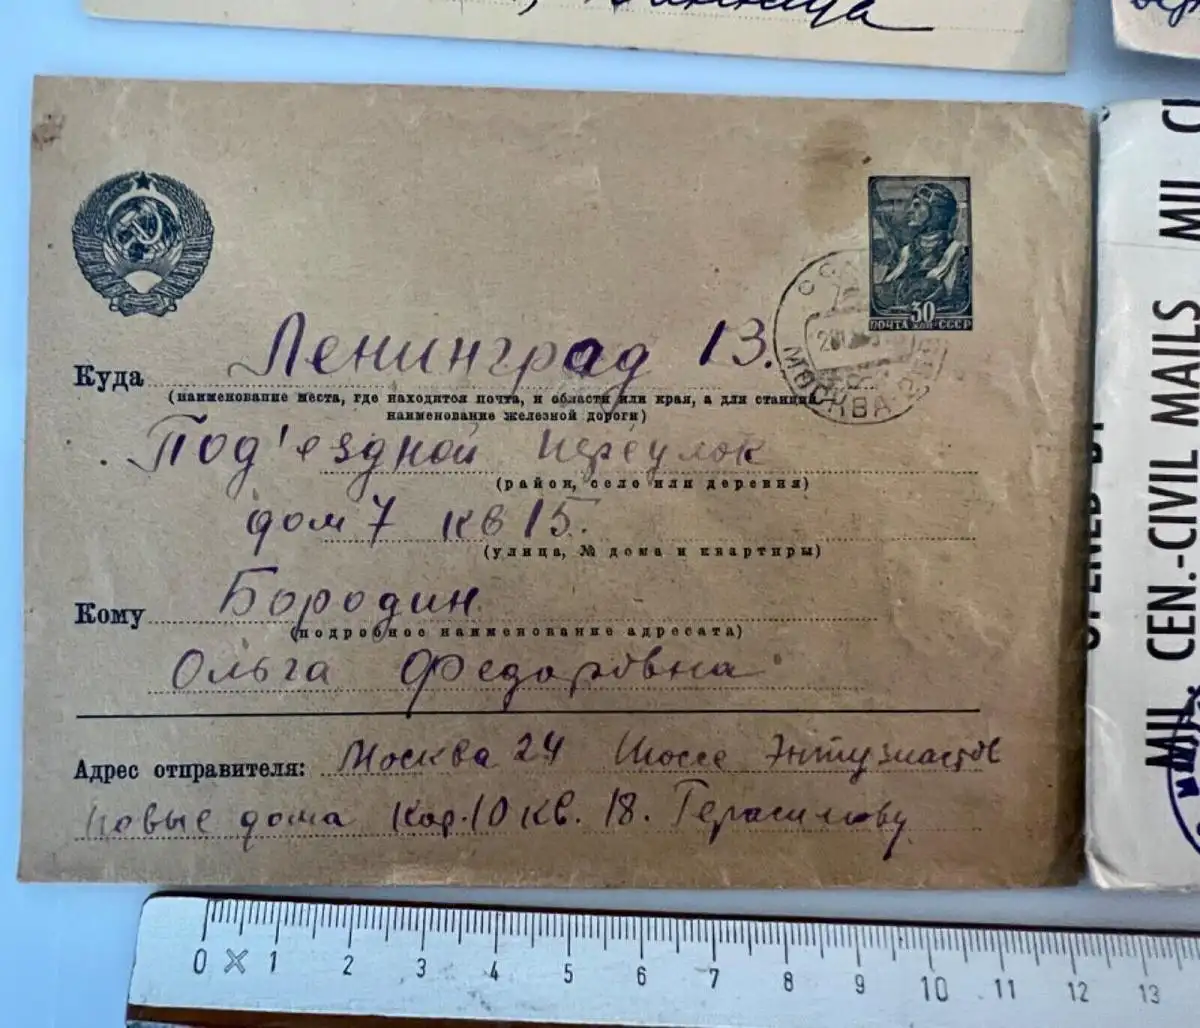 Винница
30
ПОЧТА СССР
МОСКВА
Куда Ленинград 13.
(наименование места, где находится почта, и области или края, а для станций
наименование железной дороги)
Под'ездной переулок
(район, село или деревня)
дом 7 кв 15.
(улица, № дома и квартиры)
Кому Бородин
(подробное наименование адресата)
Ольга Федоровна
Адрес отправителя: Москва 24 Шоссе Энтузиастов
новые дома Кор. 10 кв. 18. Герасимову
OPENED BY
MIL. CEN.-CIVIL MAILS MIL
0 1 2 3 4 5 6 7 8 9 10 11 12 13